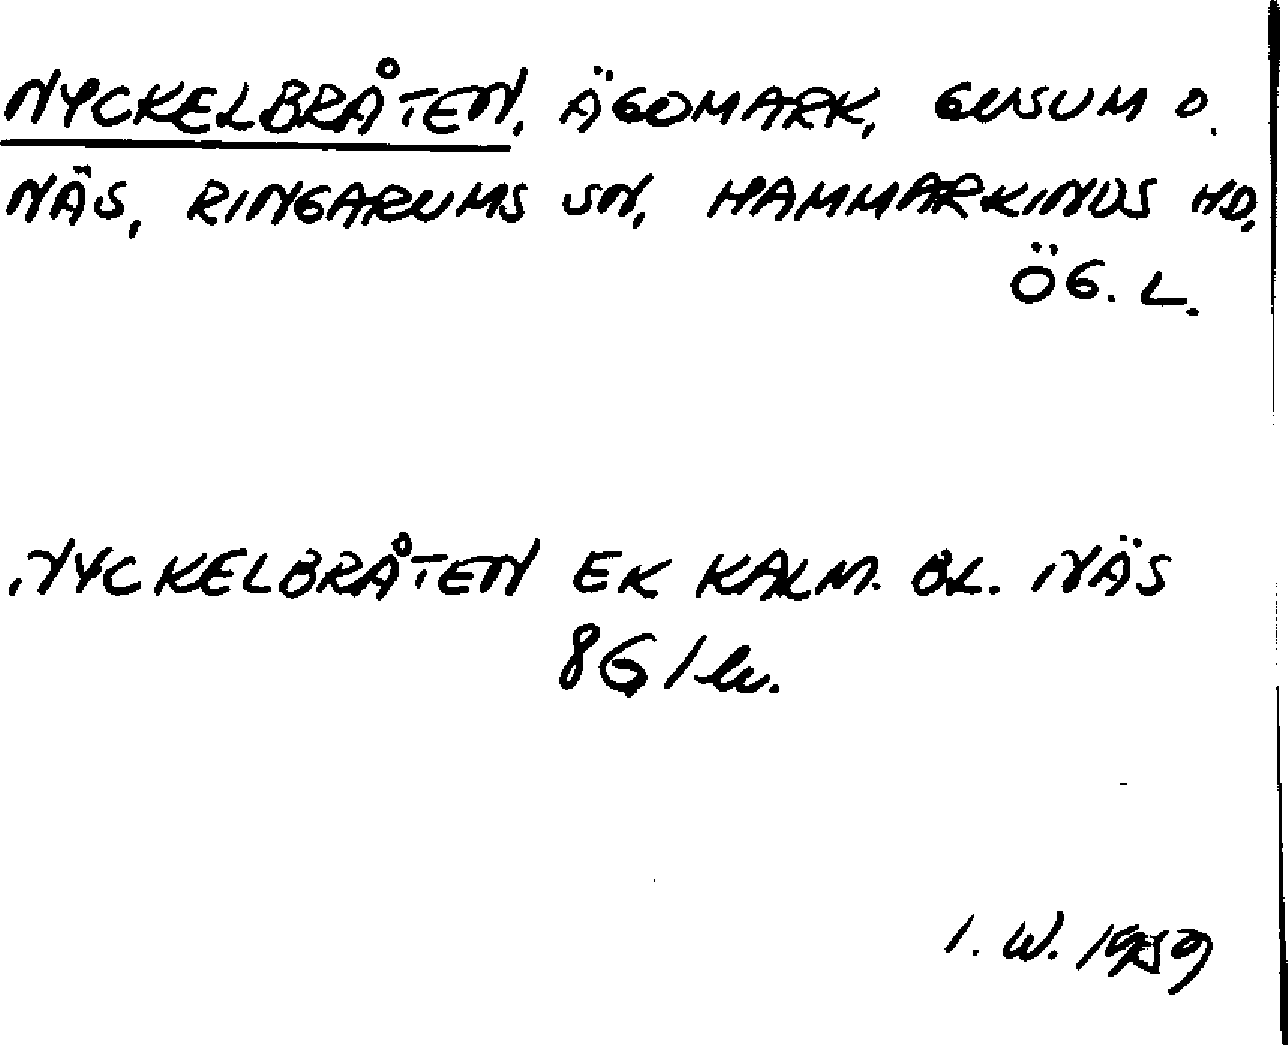 NYCKELBRÅTEN, ÄGOMARK, GUSUM O.
NÄS, RINGARUMS SN, HAMMARKINDS HD,
ÖG. L.
NYCKELBRÅTEN EK KALM. BL. NÄS
8G 1
I. W. 1959